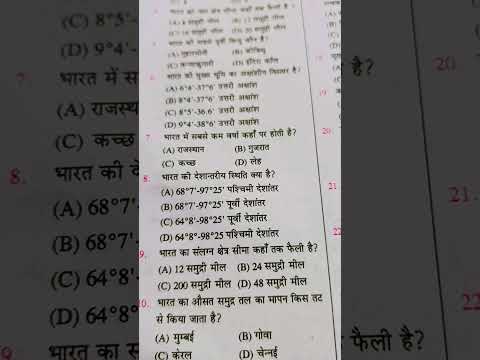 (A) 6 समुद्री मील (B) 12 समुद्री मील
भारत का सबसे पूर्वी बिन्दु कौन है?
(A) गुहारमोती (B) कीबिथू
(C) कन्याकुमारी (D) इंदिरा कॉल
भारत की मुख्य भूमि का अक्षांशीय विस्तार है?
(A) 6°4'-37°6' उत्तरी अक्षांश
(B) 8°4'-37°6' उत्तरी अक्षांश
(C) 8°5'-36.6' उत्तरी अक्षांश
(D) 9°4'-38°6' उत्तरी अक्षांश
7. भारत में सबसे कम वर्षा कहाँ पर होती है?
(A) राजस्थान (B) गुजरात
(C) कच्छ (D) लेह
8. भारत की देशान्तरीय स्थिति क्या है?
(A) 68°7'-97°25' पश्चिमी देशांतर
(B) 68°7'-97°25' पूर्वी देशांतर
(C) 64°8'-98°25' पूर्वी देशांतर
(D) 64°8°-98°25 पश्चिमी देशांतर
9. भारत का संलग्न क्षेत्र सीमा कहाँ तक फैली है?
(A) 12 समुद्री मील (B) 24 समुद्री मील
(C) 200 समुद्री मील (D) 48 समुद्री मील
10. भारत का औसत समुद्र तल का मापन किस तट
से किया जाता है?
(A) मुम्बई (B) गोवा
(C) केरल (D) चेन्नई
(C) 8°5'-
(D) 9°4'-
7. भारत में स
(A) राजस्था
(C) कच्छ
8. भारत की दे
(A) 68°7'
(B) 68°7'
(C) 64°8'
(D) 64°8
भारत का स
है?
20.
21.
22
फैली है?